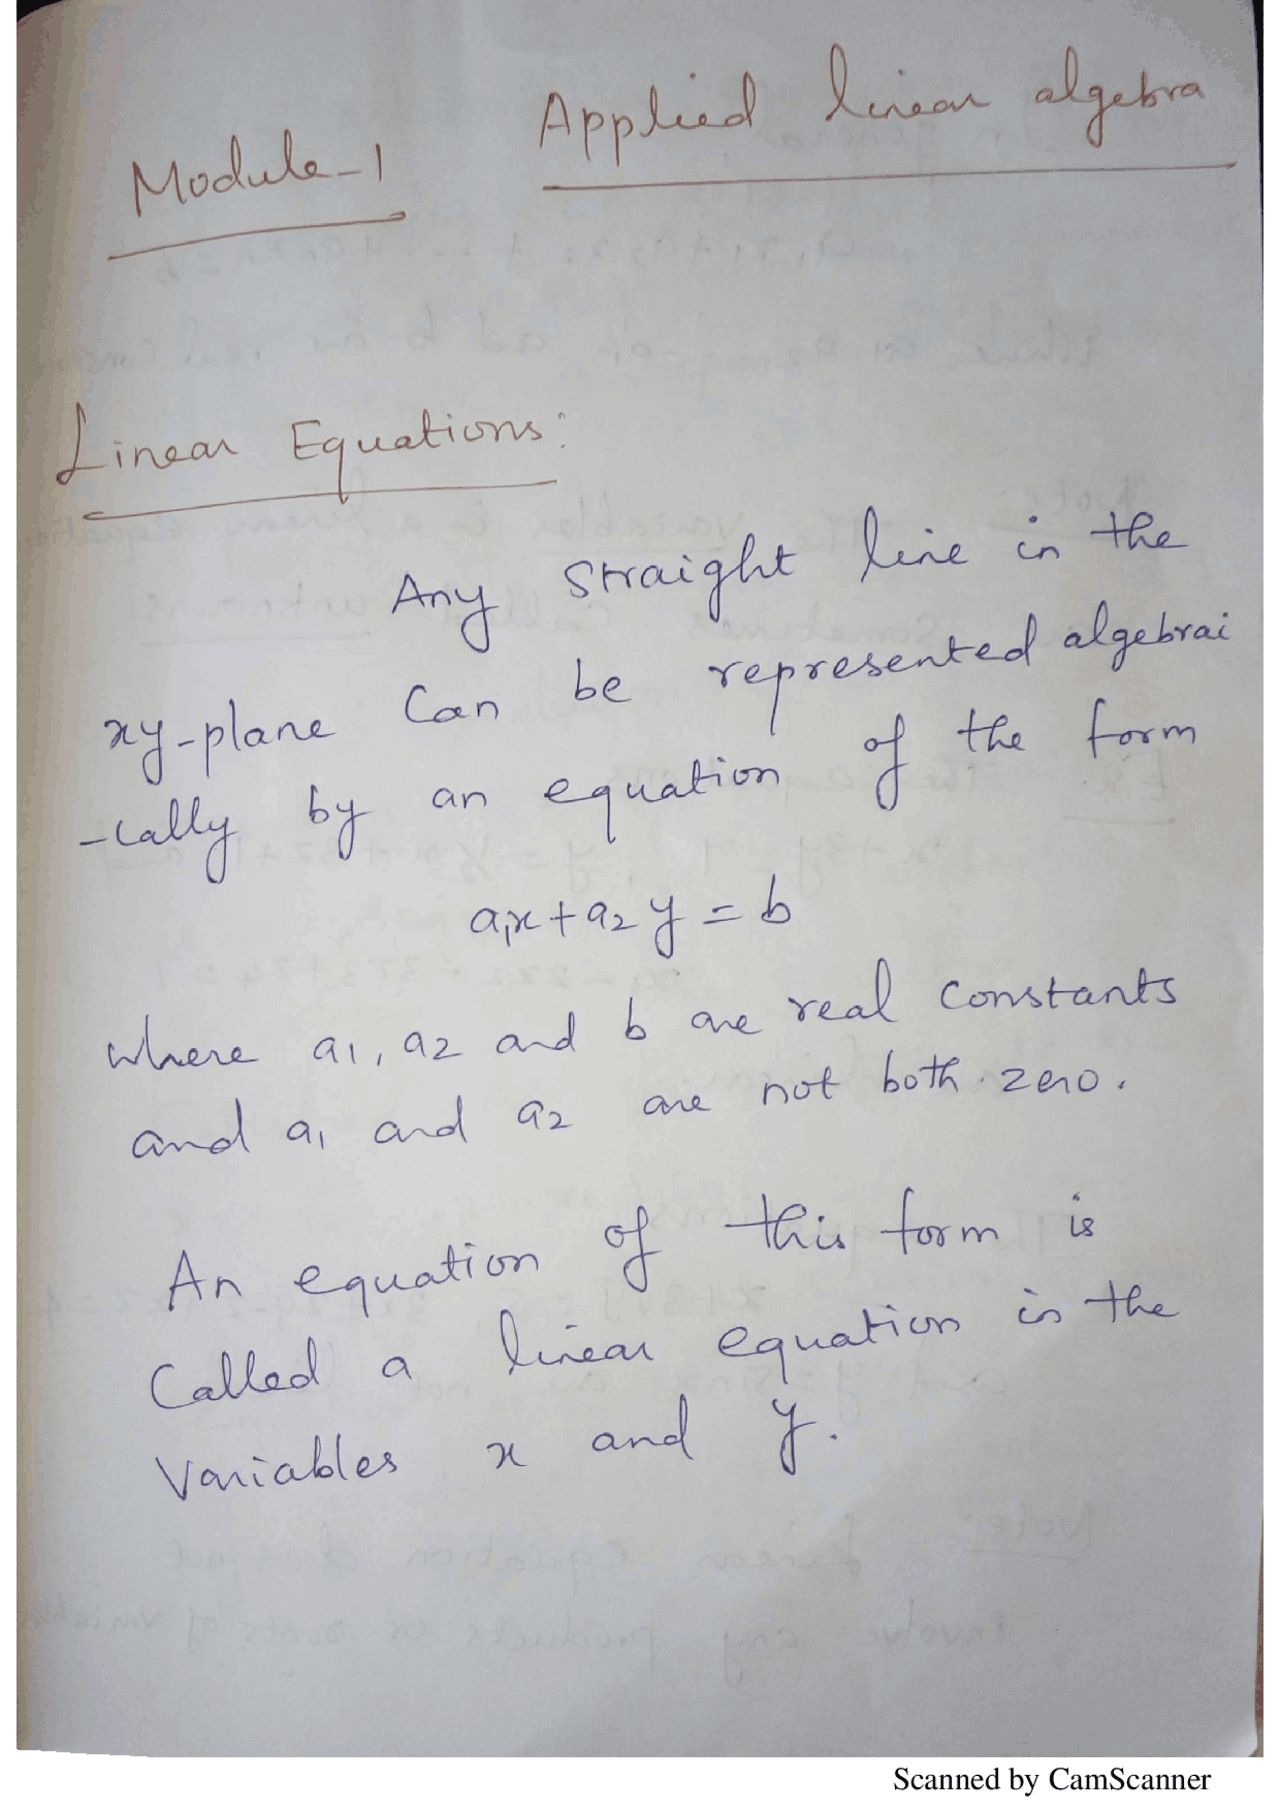 Applied linear algebra
Module-1
Linear Equations:
Any straight line in the
xy-plane can be represented algebrai
-cally by an equation of the form
a₁x + a₂y = b
where a₁, a₂ and b are real constants
and a₁ and a₂ are not both zero.
An equation of this form is
called a linear equation in the
variables x and y.
Scanned by CamScanner